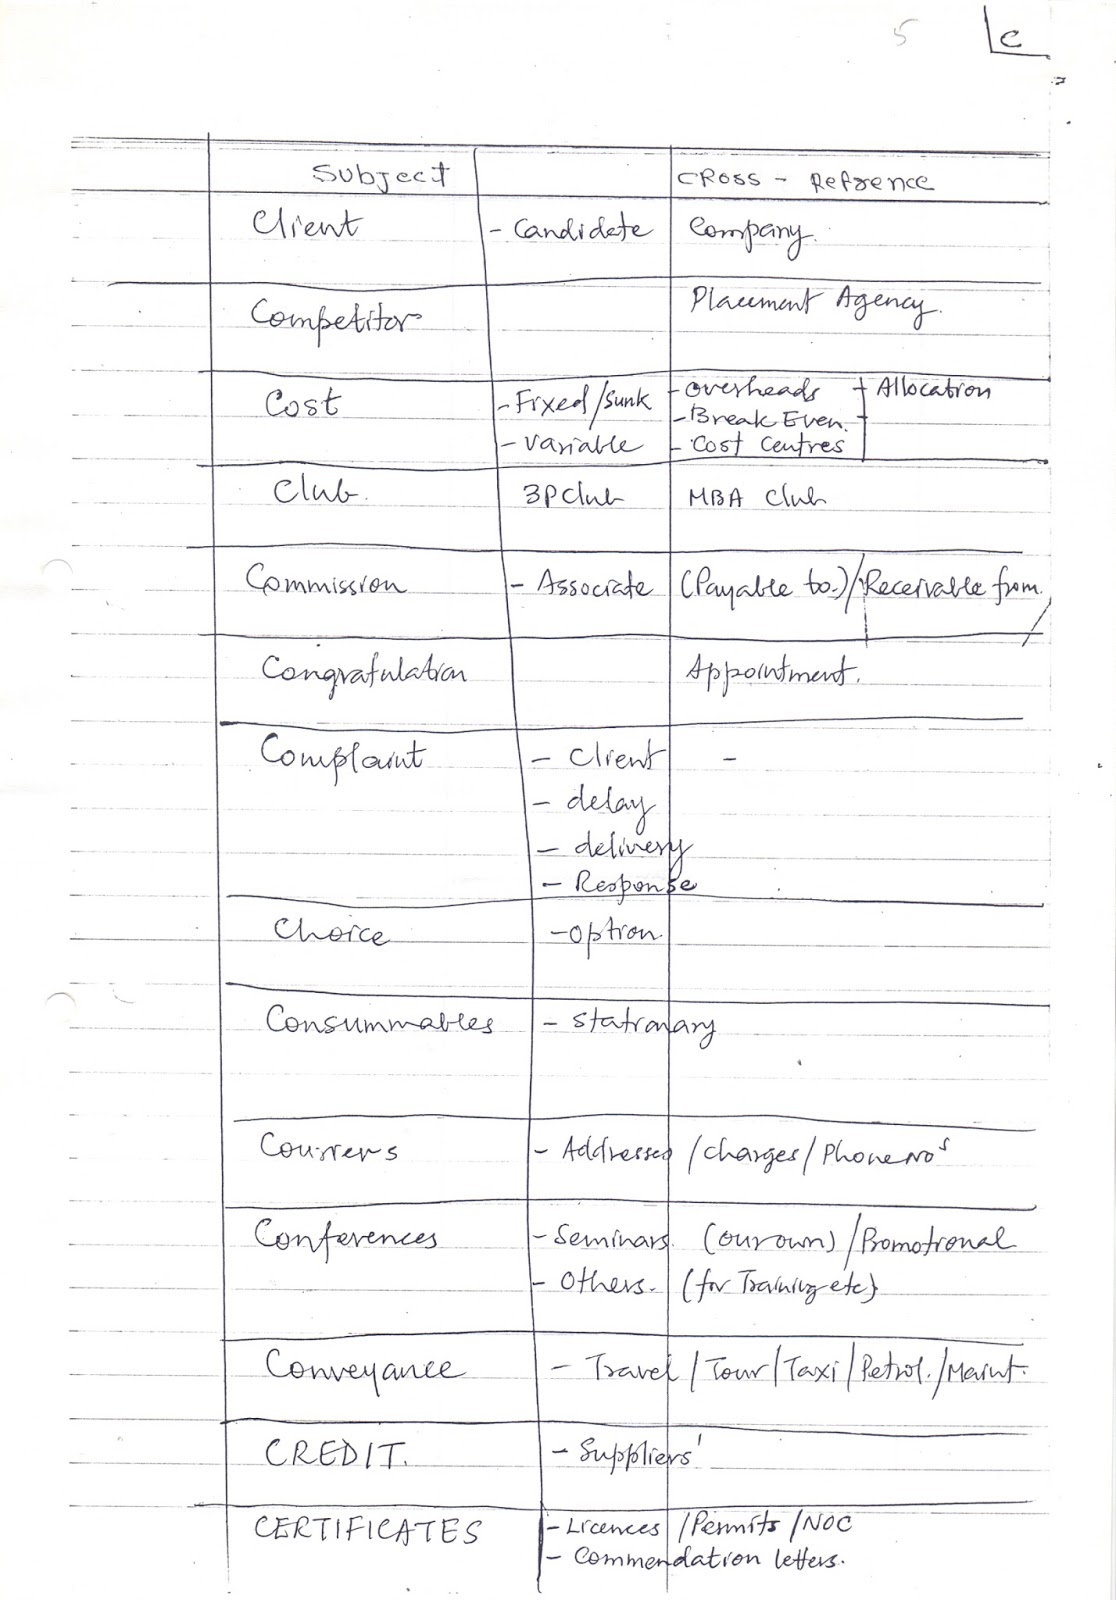 5 C
Subject CROSS - Reference
Client - Candidate Company.
Competitor Placement Agency.
Cost - Fixed/Sunk - overheads Allocation
- Break Even.
- Variable - Cost Centres
Club. 3P Club MBA Club
Commission - Associate (Payable to.)/Receivable from.
Congratulation Appointment.
Complaint - Client -
- delay
- delivery
- Response
Choice - option
Consummables - Stationary
Couriers - Addresses /Charges/Phone Nos
Conferences - Seminars. (our own) /Promotional
- Others. (for Training etc)
Conveyance - Travel / Tour / Taxi / Petrol. / Maint.
CREDIT. - Suppliers'
CERTIFICATES - Licences /Permits /NOC
- Commendation letters.